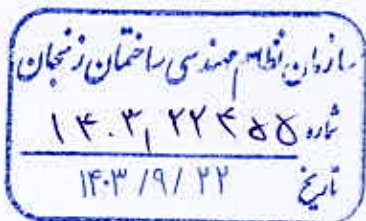 سازمان نظام مهندسی ساختمان زنجان
شماره ۱۴۰۳,۲۲۴۵۵
تاریخ ۱۴۰۳/۹/۲۲